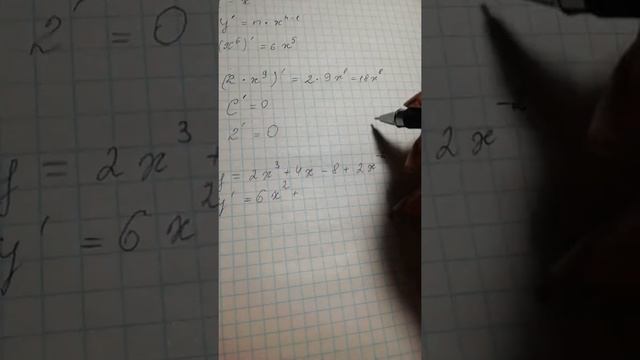 y' = n · x^(n-1)
(x⁶)' = 6x⁵
(2 · x⁹)' = 2 · 9x⁸ = 18x⁸
C' = 0
2' = 0
y = 2x³ + 4x - 8 + 2x⁻
y' = 6x² +